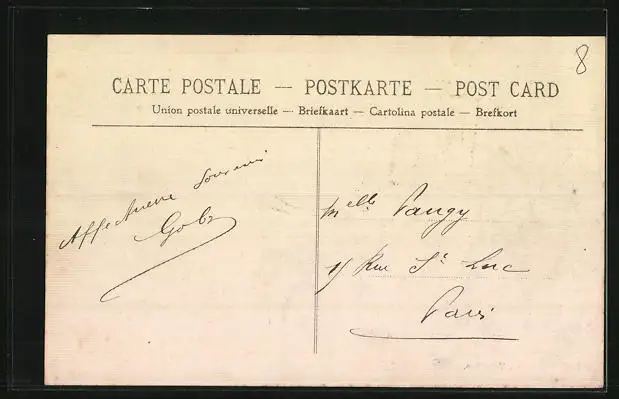 8
CARTE POSTALE — POSTKARTE — POST CARD
Union postale universelle — Briefkaart — Cartolina postale — Brefkort
Affectueux Souvenir
Melle
Rue St Luc
Paris